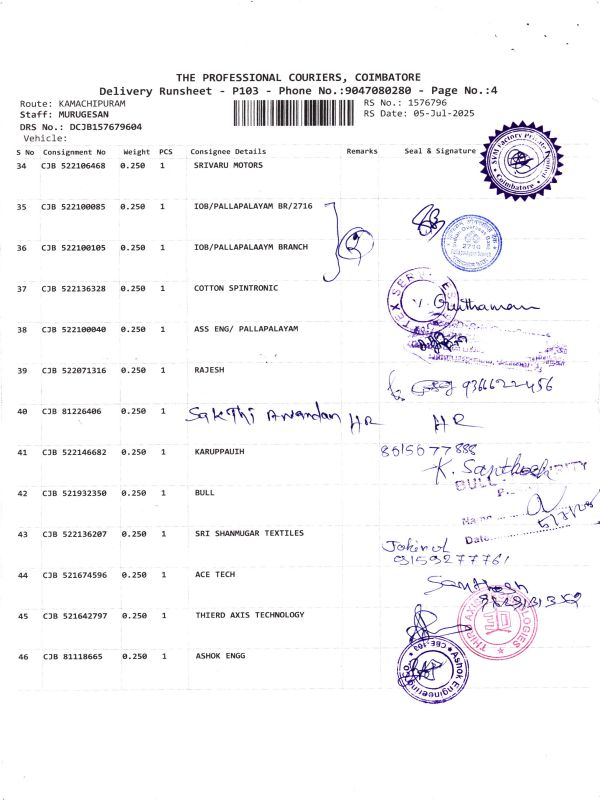 THE PROFESSIONAL COURIERS, COIMBATORE
Delivery Runsheet - P103 - Phone No.:9047080280 - Page No.:4
Route: KAMACHIPURAM
RS No.: 1576796
Staff: MURUGESAN
RS Date: 05-Jul-2025
DRS No.: DCJB157679604
Vehicle:
S No Consignment No Weight PCS Consignee Details Remarks Seal & Signature
34 CJB 522106468 0.250 1 SRIVARU MOTORS
Coimbatore
35 CJB 522100085 0.250 1 IOB/PALLAPALAYAM BR/2716
2716
36 CJB 522100105 0.250 1 IOB/PALLAPALAAYM BRANCH
37 CJB 522136328 0.250 1 COTTON SPINTRONIC
38 CJB 522100040 0.250 1 ASS ENG/ PALLAPALAYAM
39 CJB 522071316 0.250 1 RAJESH
9366622456
40 CJB 81226406 0.250 1 Sakthi Anandan HR HR
41 CJB 522146682 0.250 1 KARUPPAUIH
8615677888
K. Santhosh
42 CJB 521932350 0.250 1 BULL
BULL
Name
5/7/25
Date
43 CJB 522136207 0.250 1 SRI SHANMUGAR TEXTILES
9159277761
44 CJB 521674596 0.250 1 ACE TECH
Santhosh
45 CJB 521642797 0.250 1 THIERD AXIS TECHNOLOGY
46 CJB 81118665 0.250 1 ASHOK ENGG
Ashok Engineering
CBE-103